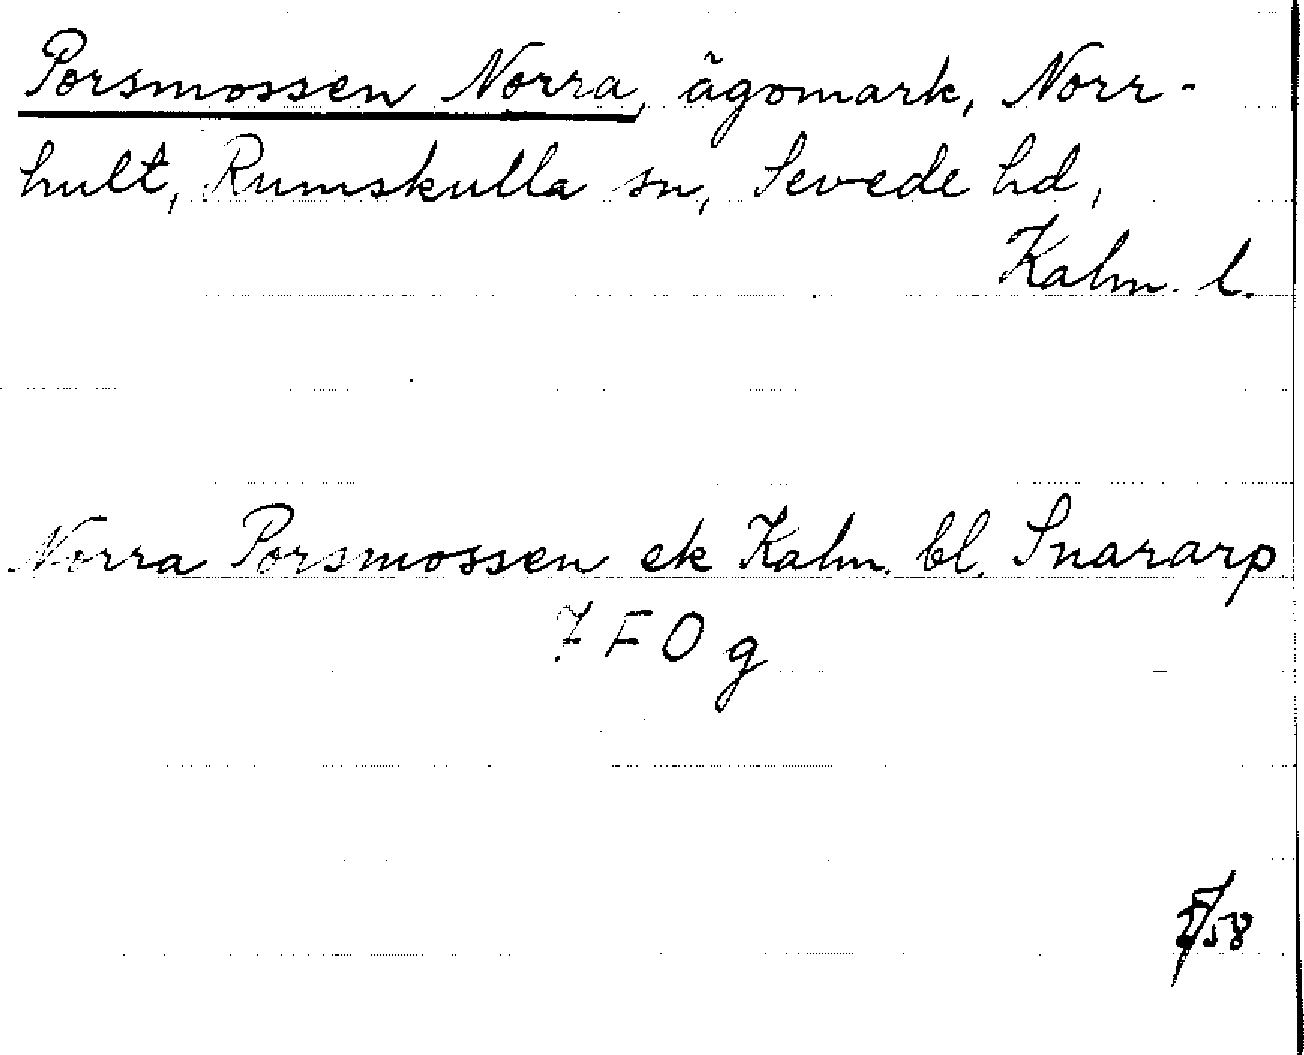 Porsmossen Norra, ägomark, Norr-
hult, Rumskulla sn, Sevede hd,
Kalm. l.
Norra Porsmossen ek Kalm. bl. Snararp
7 F O g